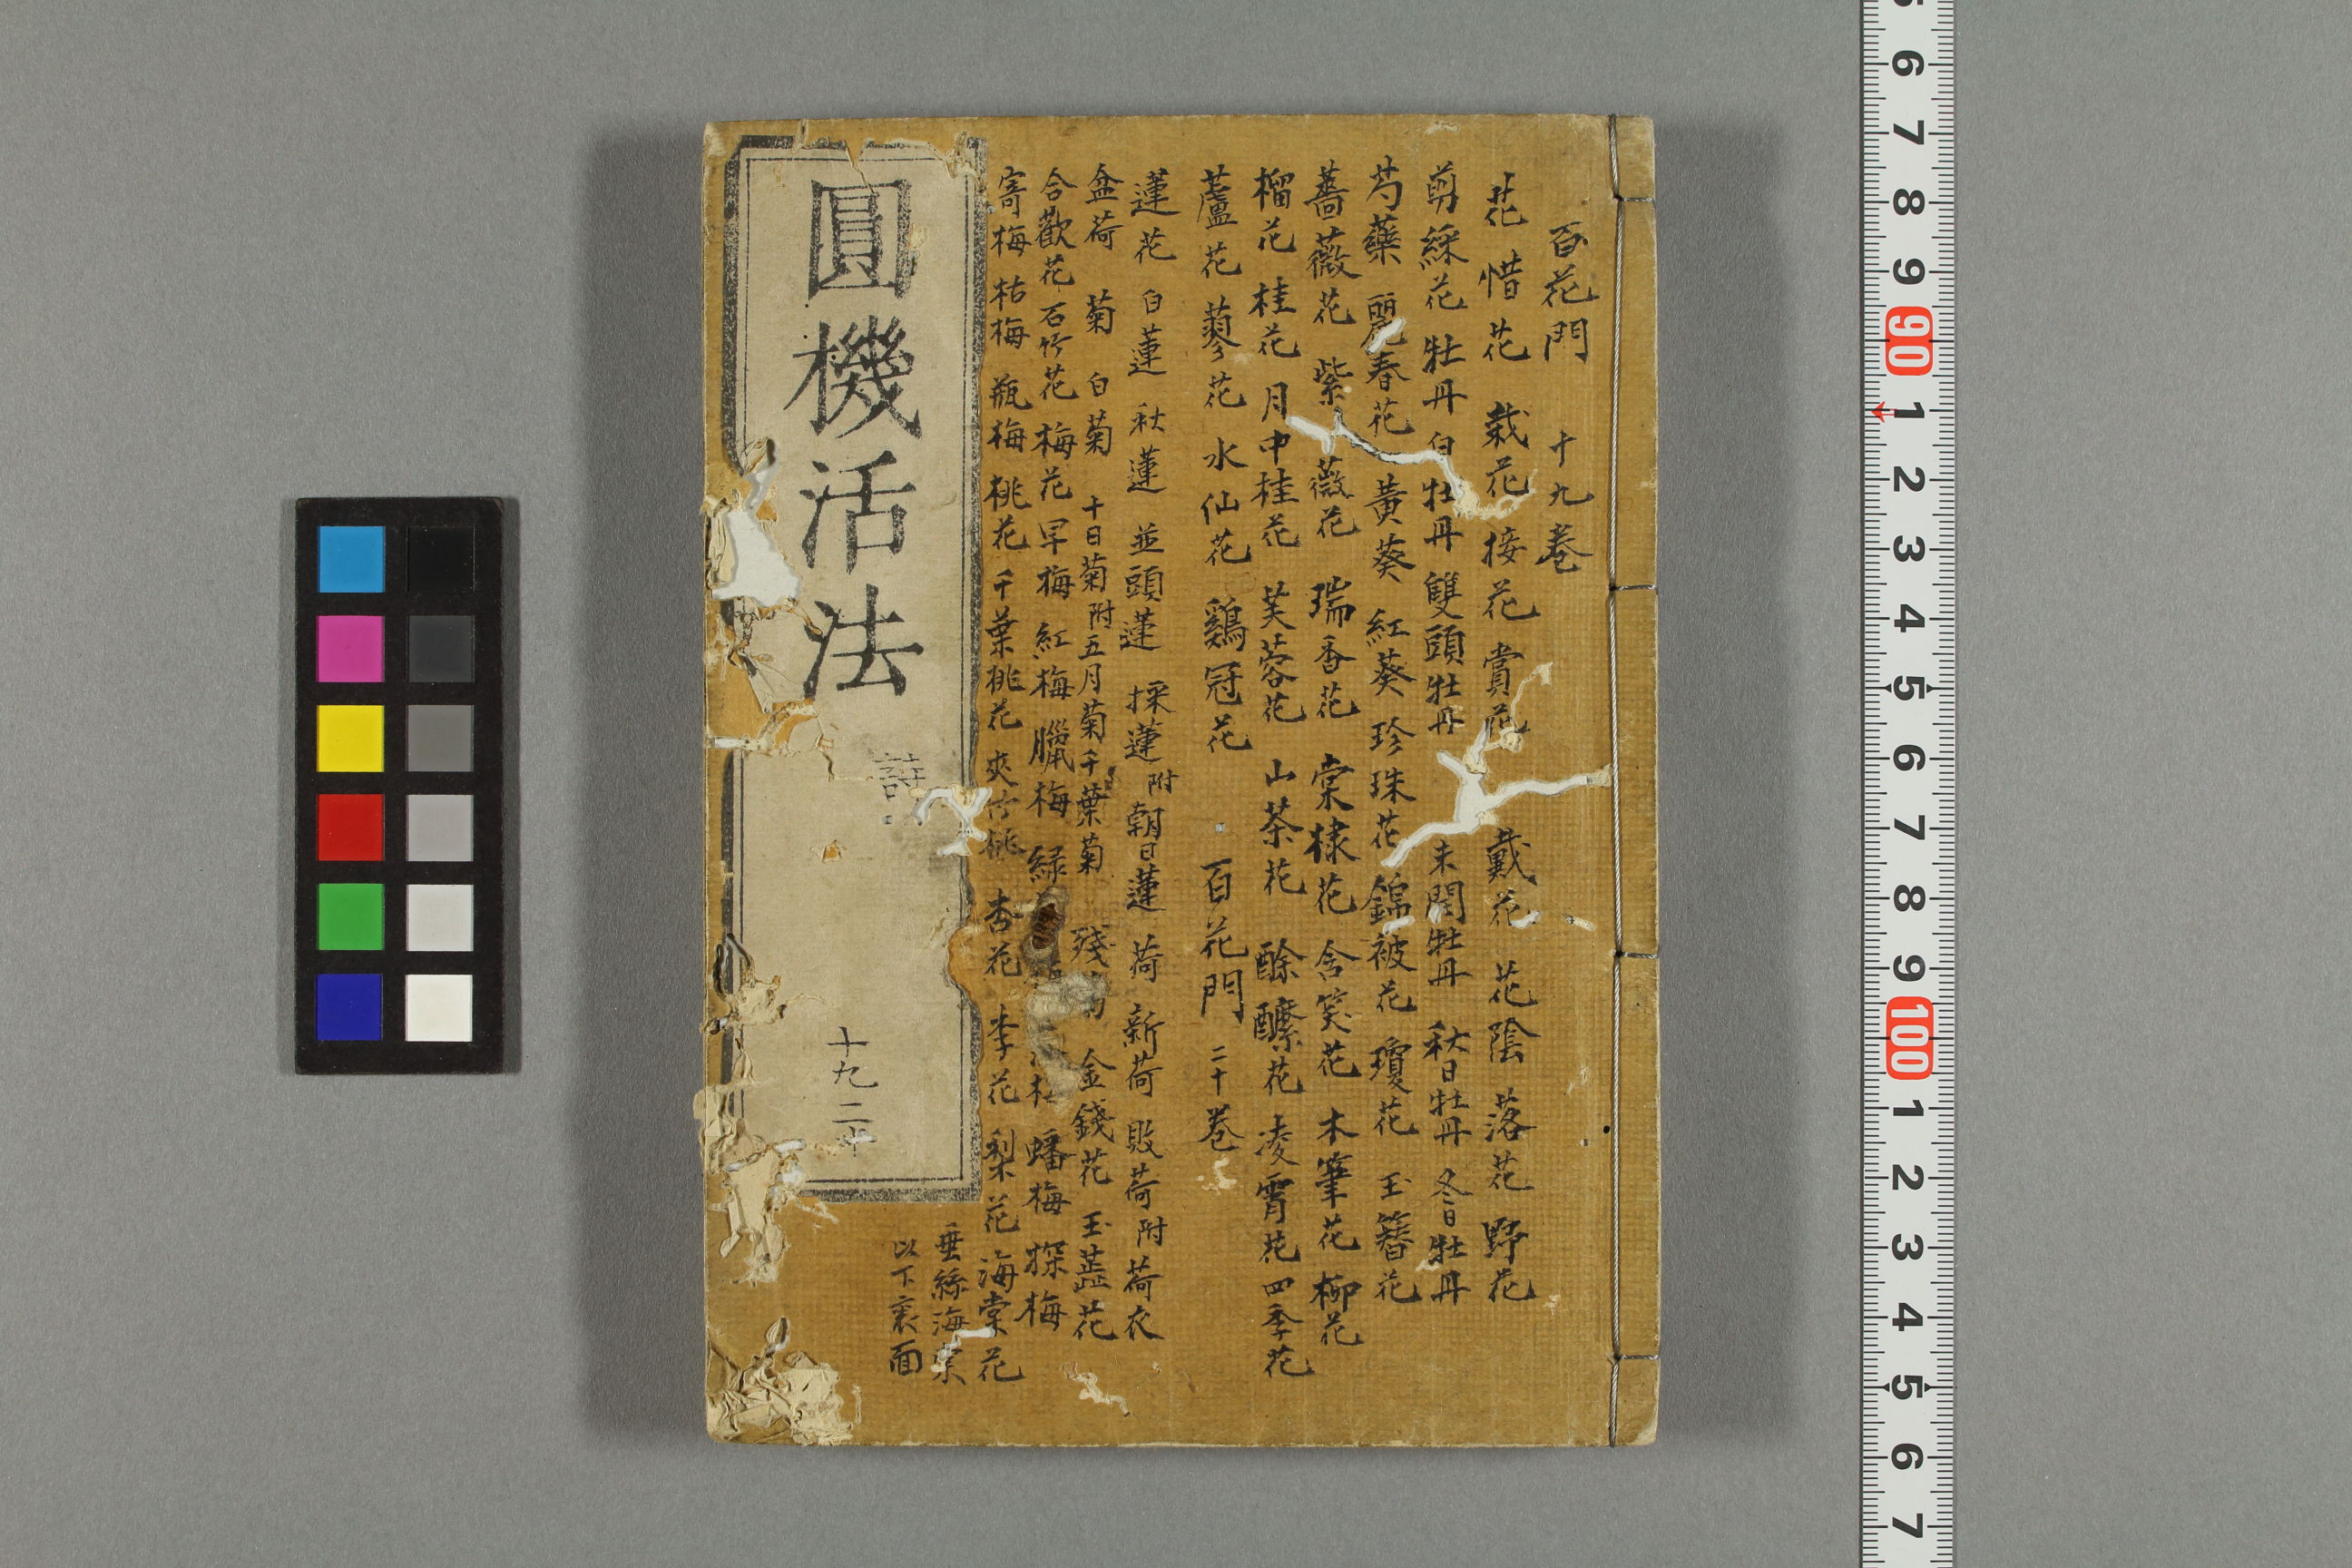 百花門 十九巻
花 惜花 栽花 接花 賞花 戴花 花陰 落花 野花
剪綵花 牡丹 白牡丹 雙頭牡丹 未開牡丹 秋日牡丹 冬日牡丹
芍藥 麗春花 黃葵 紅葵 珍珠花 錦被花 瓊花 玉簪花
薔薇花 紫薇花 瑞香花 棠棣花 含笑花 木筆花 柳花
榴花 桂花 月中桂花 芙蓉花 山茶花 酴醾花 凌霄花 四季花
蘆花 蓼花 水仙花 鷄冠花 百花門 二十巻
蓮花 白蓮 秋蓮 並頭蓮 採蓮 附朝日蓮 荷 新荷 敗荷 附荷衣
盆荷 菊 白菊 十日菊 附五月菊 千葉菊 殘 金錢花 玉蕋花
合歡花 石竹花 梅花 早梅 紅梅 臘梅 綠 蟠梅 探梅
寄梅 枯梅 瓶梅 桃花 千葉桃花 夾竹桃 杏花 李花 梨花 海棠花
垂絲海棠
以下裏面
圓機活法
詩
十九 二十
5 6 7 8 9 90 1 2 3 4 5 6 7 8 9 100 1 2 3 4 5 6 7